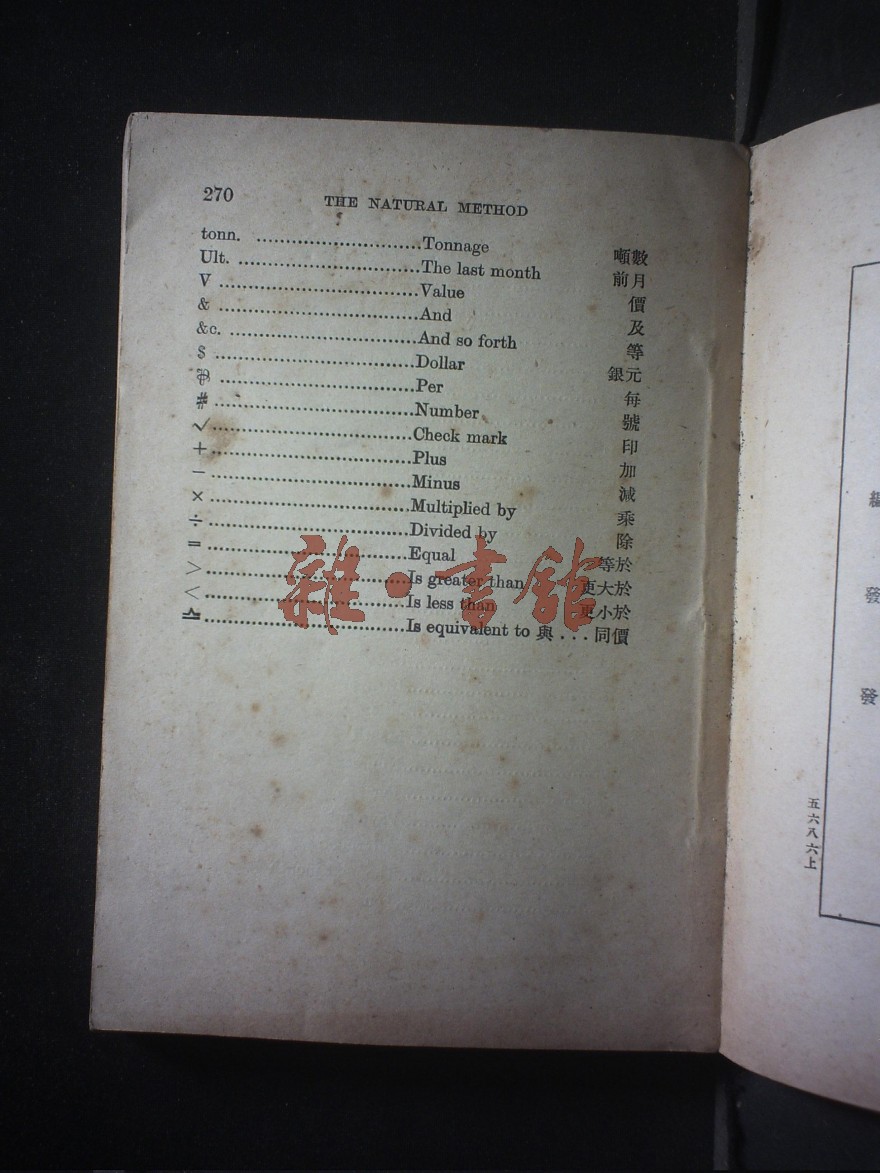 270 THE NATURAL METHOD
tonn. ............................Tonnage 噸數
Ult. ...............................The last month 前月
V ..................................Value 價
& ..................................And 及
&c. ................................And so forth 等
$ ..................................Dollar 銀元
⅌ ..................................Per 每
# ..................................Number 號
✓ ..................................Check mark 印
+ ..................................Plus 加
− ..................................Minus 減
× ..................................Multiplied by 乘
÷ ..................................Divided by 除
= ..................................Equal 等於
> ..................................Is greater than 更大於
< ..................................Is less than 更小於
≏ ..................................Is equivalent to 與...同價
雜·書館
編
發
發
五六八六上